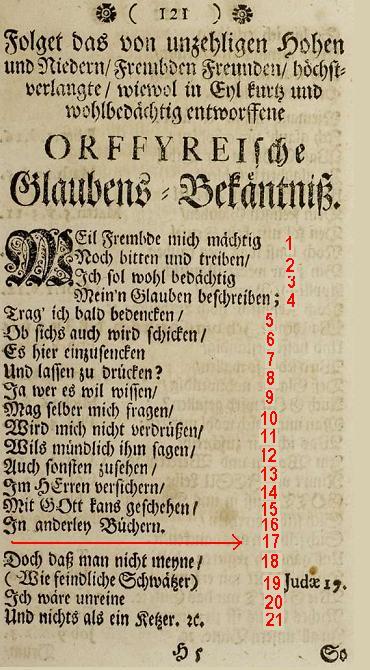 ❀ ( 121 ) ❀
Folget das von unzehligen Hohen
und Niedern/ Frembden Freunden/ höchst-
verlangte/ wiewol in Eyl kurtz und
wohlbedächtig entworffene
ORFFYREIsche
Glaubens-Bekäntniß.
WEil Frembde mich mächtig 1
Noch bitten und treiben/ 2
Ich sol wohl bedächtig 3
Mein'n Glauben beschreiben; 4
Trag' ich bald bedencken/ 5
Ob sichs auch wird schicken/ 6
Es hier einzusencken 7
Und lassen zu drücken? 8
Ja wer es wil wissen/ 9
Mag selber mich fragen/ 10
Wird mich nicht verdrüßen/ 11
Wils mündlich ihm sagen/ 12
Auch sonsten zusehen/ 13
Im HErren versichern/ 14
Mit GOtt kans geschehen/ 15
In anderley Büchern. 16
17
Doch daß man nicht meyne/ 18
(Wie feindliche Schwätzer) 19 Judæ 19.
Ich wäre unreine 20
Und nichts als ein Ketzer. ꝛc. 21
H 5 So